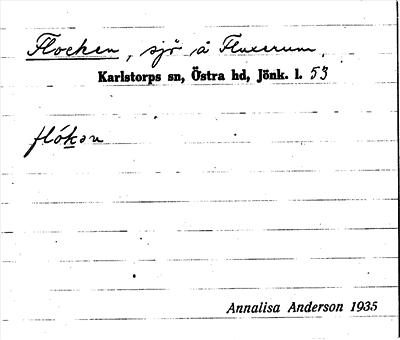 Flocken, sjö å Fluxerum.
Karlstorps sn, Östra hd, Jönk. l. 53
flókən
Annalisa Anderson 1935